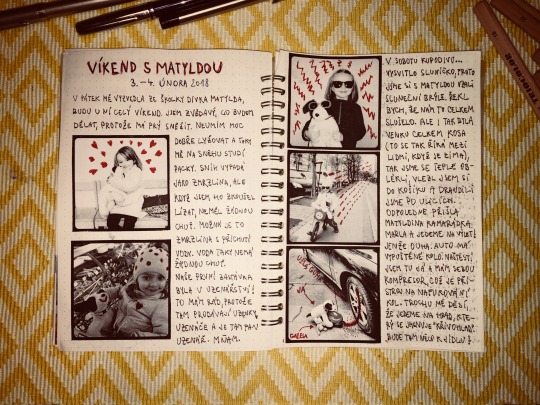 VÍKEND S MATYLDOU
3. – 4. ÚNORA 2018
V PÁTEK MĚ VYZVEDLA ZE ŠKOLKY DÍVKA MATYLDA,
BUDU U NÍ CELÝ VÍKEND. JSEM ZVĚDAVÝ, CO BUDEM
DĚLAT, PROTOŽE MÁ PRÝ SNĚŽIT. NEUMÍM MOC
DOBŘE LYŽOVAT A TAKY
MĚ NA SNĚHU STUDÍ
PACKY. SNÍH VYPADÁ
JAKO ZMRZLINA, ALE
KDYŽ JSEM HO ZKOUŠEL
LÍZAT, NEMĚL ŽÁDNOU
CHUŤ. MOŽNÁ JE TO
ZMRZLINA S PŘÍCHUTÍ
VODY. VODA TAKY NEMÁ
ŽÁDNOU CHUŤ.
NAŠE PRVNÍ ZASTÁVKA
BYLA V UZENÁŘSTVÍ!
TO MÁM RÁD, PROTOŽE
TAM PRODÁVAJÍ UZENKY,
UZENÁČE A JE TAM PAN
UZENÁŘ. MŇAM.
V SOBOTU KUPODIVU...
VYSVITLO SLUNÍČKO, PROTO
JSME SI S MATYLDOU VZALI
SLUNEČNÍ BRÝLE. ŘEKL
BYCH, ŽE NÁM TO CELKEM
SLUŠELO. ALE I TAK BYLA
VENKU CELKEM KOSA
(TO SE TAK ŘÍKÁ MEZI
LIDMI, KDYŽ JE ZIMA),
TAK JSME SE TEPLE OB-
LÉKLI, VLEZL JSEM SI
DO KOŠÍKU A DRANDILI
JSME PO ULICÍCH.
ODPOLEDNE PŘIŠLA
MATYLDINA KAMARÁDKA
MARLA A JEDEME NA VÝLET!
JENŽE OUHA. AUTO MÁ
VYPUŠTĚNÉ KOLO. NAŠTĚSTÍ
JSEM TU JÁ A MÁM SEBOU
KOMPRESOR, COŽ JE PŘÍ-
STROJ NA NAFUKOVÁNÍ
KOL. TROCHU MĚ DĚSÍ,
ŽE JEDEME NA HRAD, KTE-
RÝ SE JMENUJE "KŘIVOKLÁD".
BUDE TAM NĚCO K JÍDLU?
JÁ